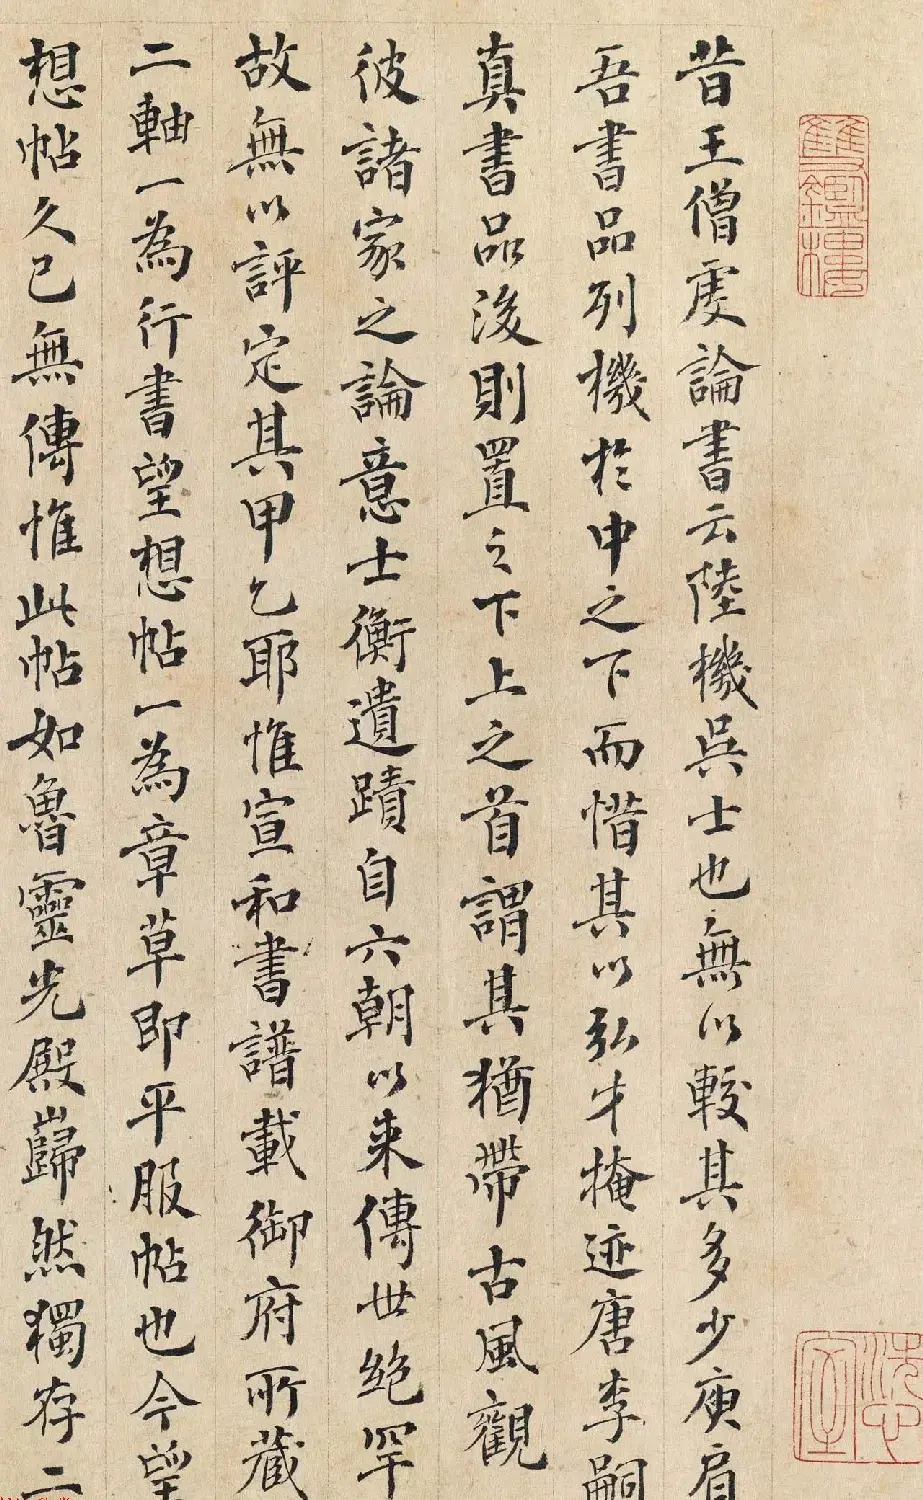 昔王僧虔論書云陸機吳士也無以較其多少庾肩
吾書品列機於中之下而惜其以弘才掩迹唐李嗣
真書品後則置之下上之首謂其猶帶古風觀
彼諸家之論意士衡遺蹟自六朝以来傳世絶罕
故無以評定其甲乙耶惟宣和書譜載御府所藏
二軸一為行書望想帖一為章草即平服帖也今望
想帖久已無傳惟此帖如魯靈光殿巋然獨存二
雙鑑樓